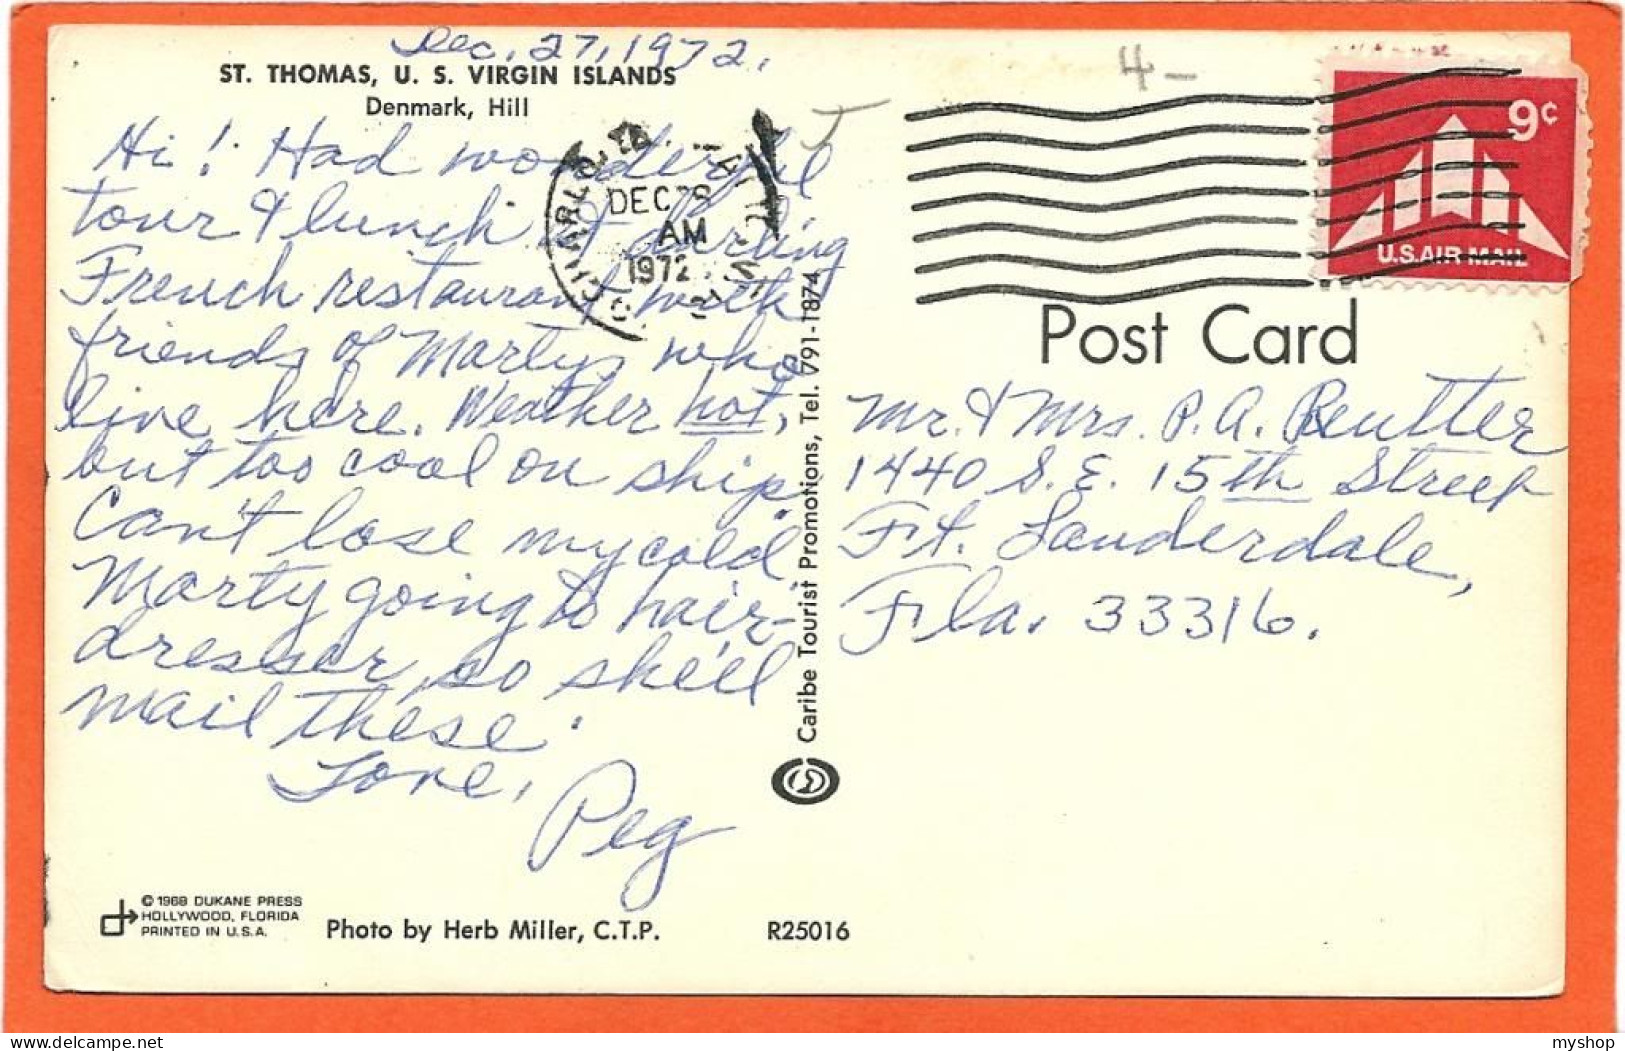 Dec. 27, 1972.
ST. THOMAS, U. S. VIRGIN ISLANDS
Denmark, Hill
Hi! Had wonderful
tour & lunch at darling
French restaurant with
friends of Martys who
live here. Weather hot,
but too cool on ship.
Can't lose my cold.
Marty going to hair-
dresser, so she'll
mail these.
Love,
Peg
© 1968 DUKANE PRESS
HOLLYWOOD, FLORIDA
PRINTED IN U.S.A.
Photo by Herb Miller, C.T.P.
R25016
Caribe Tourist Promotions, Tel. 791-1874
DEC 28
AM
1972
4-
9¢
U.S. AIR MAIL
Post Card
Mr. & Mrs. P. A. Reutter
1440 S. E. 15th Street
Ft. Lauderdale,
Fla. 33316.
delcampe.net
myshop